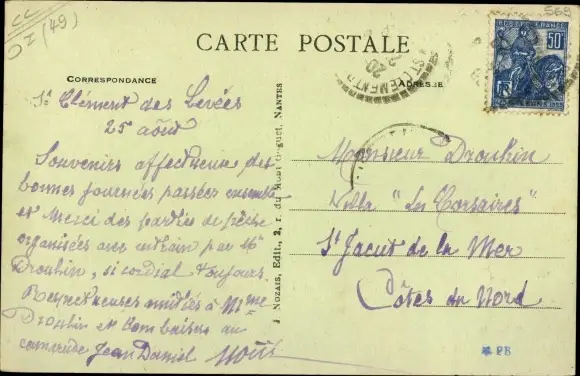 CC
DI (49)
569
CARTE POSTALE
CORRESPONDANCE
ADRESSE
POSTES R.F.
50c
ST CLEMENT
St Clément des Levées
25 août
Souvenirs affectueux des
bonnes journées passées ensemble
et Merci des parties de pêche
organisées avec entrain par Mr
Drouhin, si cordial toujours.
Respectueuses amitiés à Mme
Drouhin et bons baisers au
camarade Jean Daniel
J. Nozais, Edit., 2, r. du Nantes
Monsieur Drouhin
Villa "Les Corsaires"
St Jacut de la Mer
Côtes du Nord